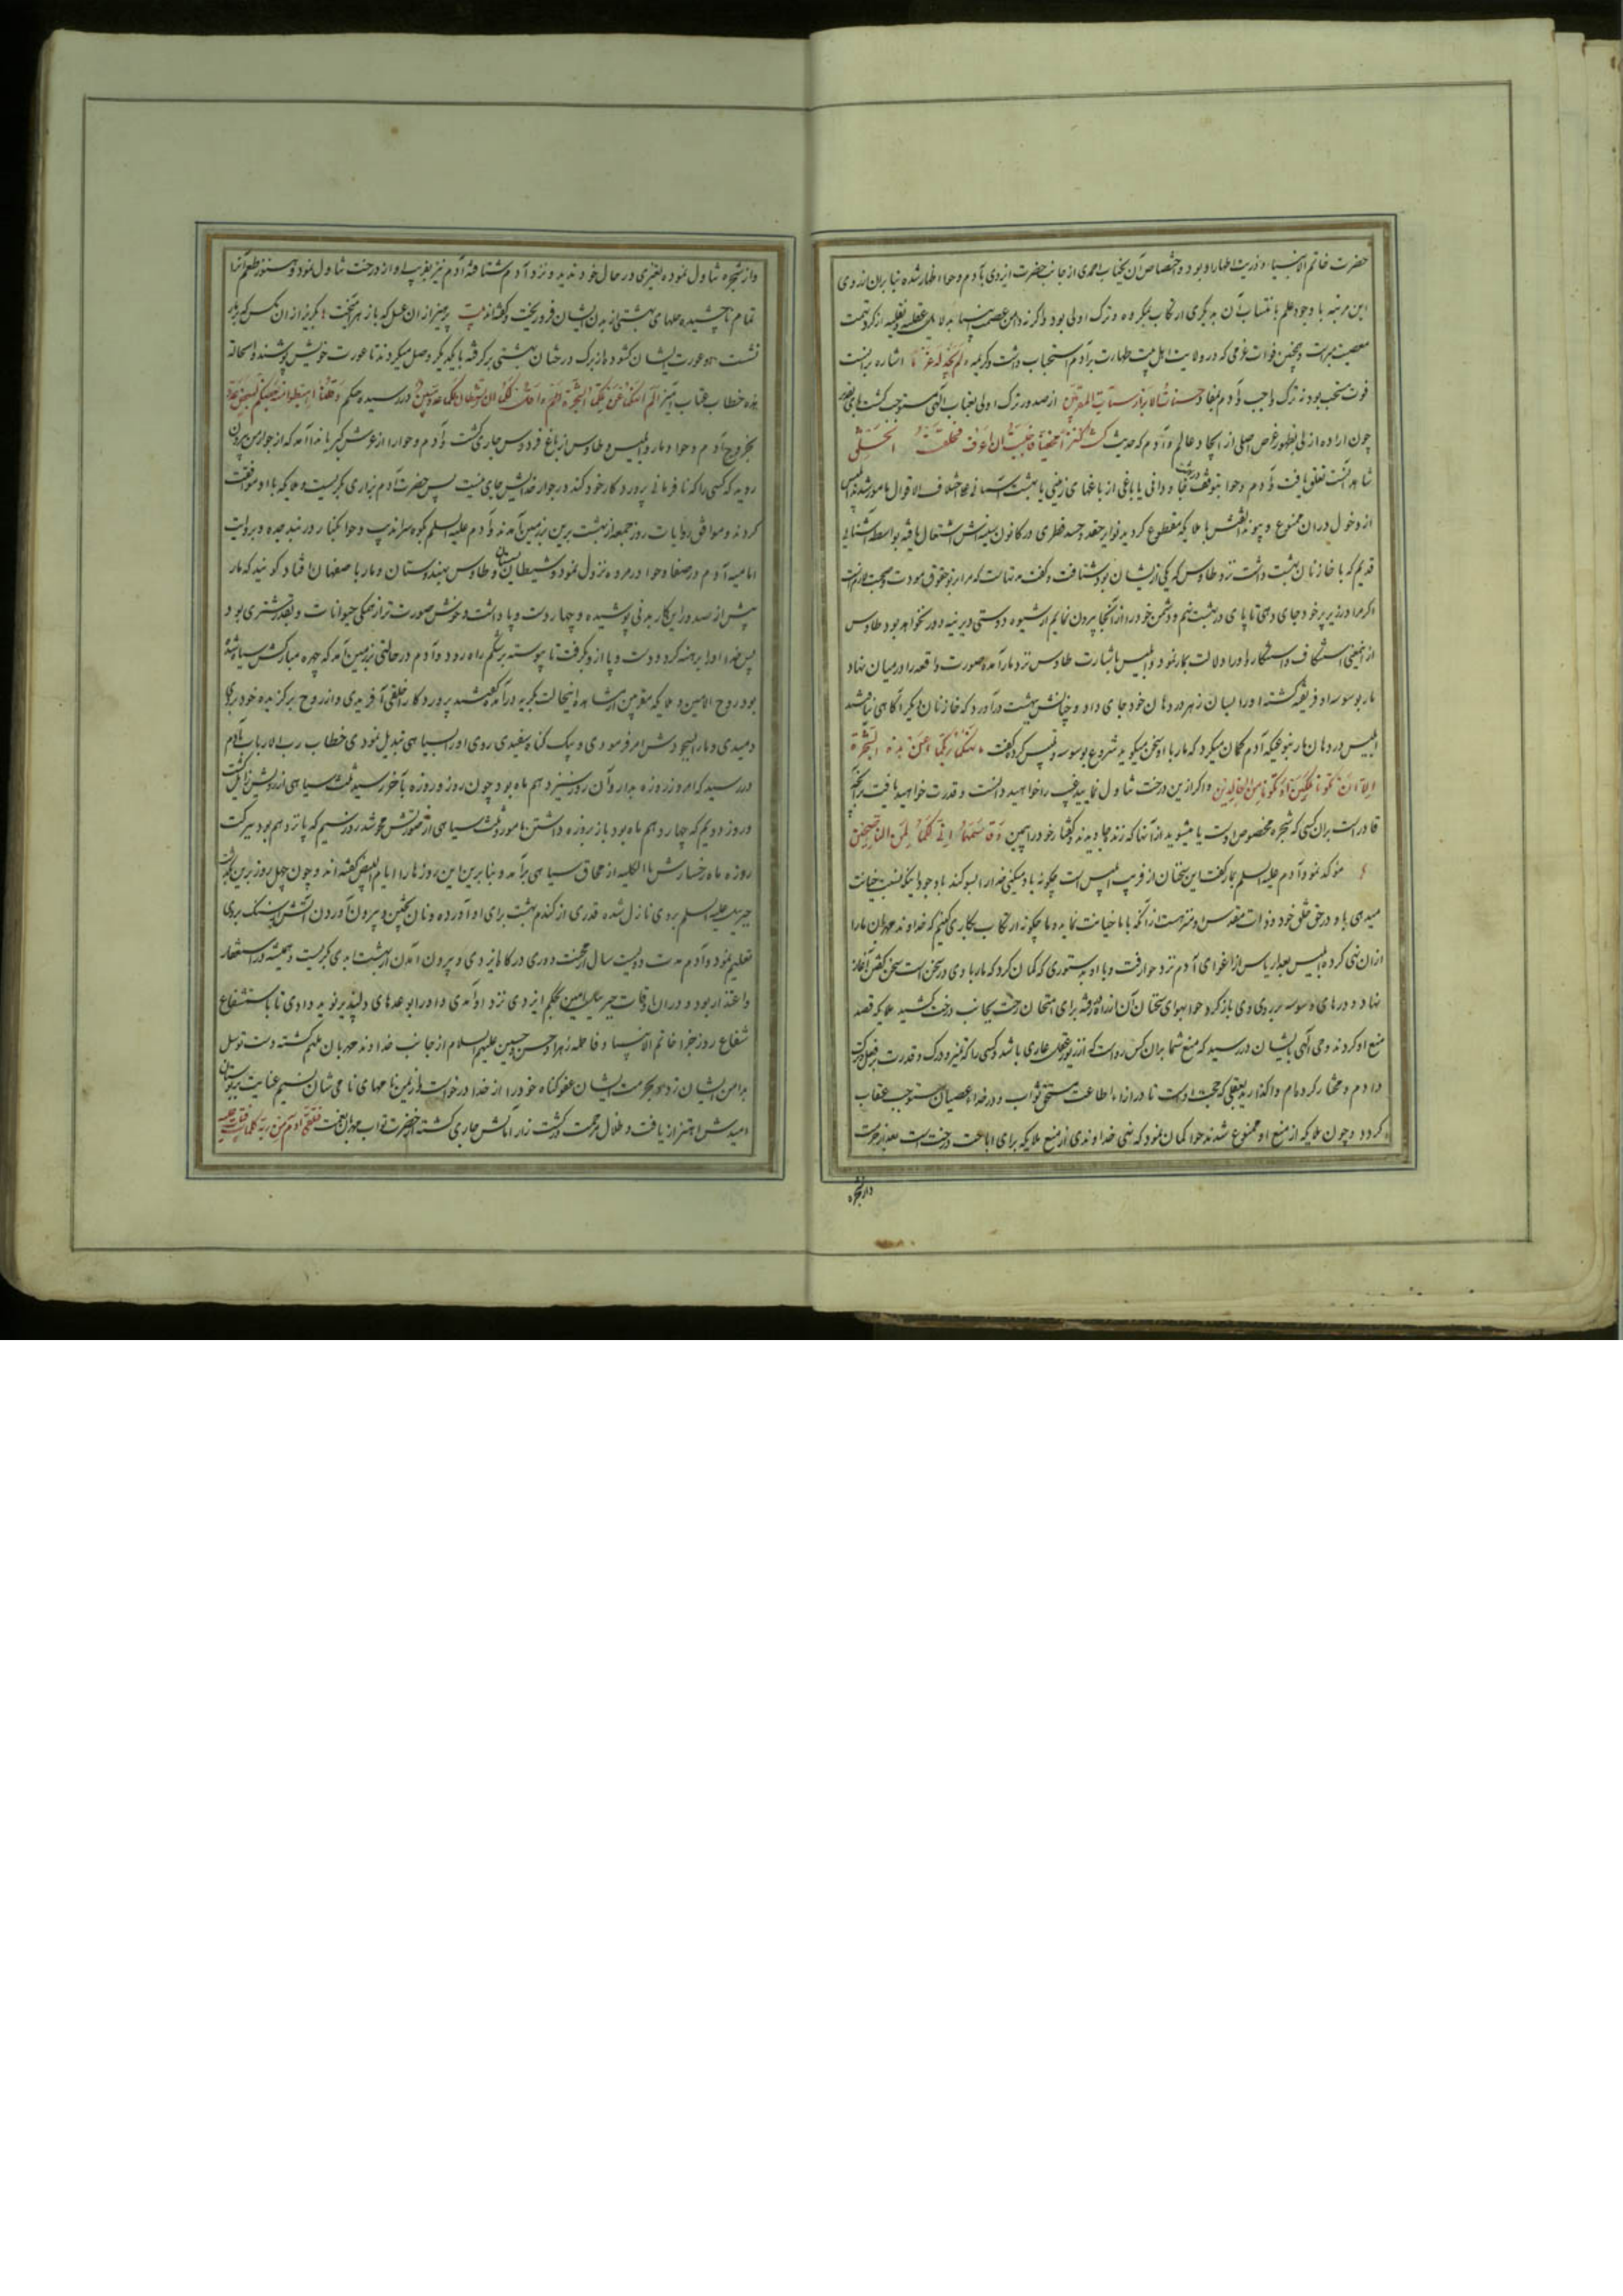 حضرت خاتم الانبیاء و ذریت اطهار او بود و اختصاص آن بجناب احمدی از جانب حضرت ایزدی بآدم و حوا اظهار شده بنا بران آرزوی
این مرتبه با وجود علم بانتساب آن بدیگری ارتکاب مکروه و ترک اولی بود و اگرنه دامن عصمت انبیا بدلایل عقلیه و نقلیه از گرد تهمت
معصیت مبراست و همچنین فوات عزمی که در ولایت اهل بیت طهارت برآدم استحباب داشت و کریمه ولم نجد له عزما اشاره بدانست
فوت مستحب بود نه ترک واجب و آدم بمفاد حسنات الابرار سیئات المقربین از صدور ترک اولی بعتاب الهی مستوجب کشت
چون اراده ازلی بظهور غرض اصلی از ایجاد عالم و آدم که حدیث کنت کنزا مخفیا فاحببت ان اعرف فخلقت الخلق
شاهد آنست تعلق یافت و آدم و حوا بتوقف در جنت جاودانی یا باغی از باغهای زمینی یا بهشت آسمانی علی اختلاف الاقوال مامور شدند ابلیس
از دخول دران ممنوع و پیوند الفتش با ملایکه مقطوع کردید نوایر حقد و حسد فطری در کانون سینه‌اش اشتعال یافته بواسطه آشنایی
قدیم که با خازنان بهشت داشت نزد طاوس که یکی ازیشان بود شتافت و گفت مدتهاست که مرا بر تو حقوق مودت و صحبت ثابت است
اگر مرا در زیر پر خود جای دهی تا پای در بهشت نهم و دشمن خود را از آنجا بیرون نمایم از شیوه دوستی دیرینه دور نخواهد بود طاوس
از این معنی استنکاف و استکبار او را دلالت بمار نمود و ابلیس باشارت طاوس نزد مار آمده صورت واقعه را در میان نهاد
مار بوسوسه او فریفته گشته او را بسان زهر در دهان خود جای داد و چنانش ببهشت درآورد که خازنان دیگر را آگاهی نباشد
ابلیس در دهان مار بنوعیکه آدم گمان میکرد که مار با او سخن میگوید شروع بوسوسه و تلبیس کرده گفت ما نهیکما ربکما عن هذه الشجرة
الا ان تکونا ملکین او تکونا من الخالدین و اگر ازین درخت تناول نمایید غیب را خواهید دانست و قدرت خواهید یافت برآنچه
قادر است بران کسی که شجره مخصوص اوست یا میشوید از آنها که زنده جاویدند و گفتار خود را بیمین و قاسمهما انی لکما لمن الناصحین
موکد نمود و آدم علیه السلم بمار گفت این سخنان از فریب ابلیس است چگونه باور میکنی خدا را سوگند با وجود اینکه نسبت خیانت
میدهی باو در حق خلق خود و ذات مقدس او منزهست از آنکه با ما خیانت نماید و ما چگونه ارتکاب بکاری کنیم که خداوند مهربان ما را
ازان نهی کرده ابلیس بعد از یاس از اغوای آدم نزد حوا رفت و با او بدستوری که گمان کرد که مار با وی در سخن است سخن گفتن آغاز
نهاد و درهای وسوسه بر روی وی باز کرد حوا بهوای سخنان آن از راه رفته برای امتحان رخت بجانب درخت کشید ملایکه قصد
منع او کردند وحی الهی بایشان در رسید که منع شما بران کس رواست که از زیور عقل عاری باشد و کسی را که تمیز و درک و قدرت بر فعل و ترک
داده‌ام و مختار کرده‌ام واگذارید بعقلی که حجت اوست تا در ازاء اطاعت مستحق ثواب و در فداء عصیان مستوجب عقاب
گردد و چون ملایکه از منع او ممنوع شدند حوا گمان نمود که نهی خداوندی از منع ملایکه برای اباحت درخت است بعد از حرمت
و از شجره
و از شجره تناول نموده تغییری در حال خود ندید و نزد آدم شتافته آدم نیز بفریب او از درخت تناول نمود و هنوز طعم آنرا
تمام ناچشیده حلهای بهشتی از بدن ایشان فرو ریخت و گفته‌اند بیت پرهیز ازان عسل که با زهر آمیخت بگریز ازان مگس که بر مار
نشست و عورت ایشان کشوده از برگ درختان بهشتی برگرفته بایکدیگر وصل میکردند تا عورت خویش پوشند و سبحانه
خطاب عتاب آمیز الم انهکما عن تلکما الشجرة و اقل لکما ان الشیطان لکما عدو مبین در رسیده بحکم و قلنا اهبطوا بعضکم لبعض عدو
بخروج آدم و حوا و مار و ابلیس و طاوس از باغ فردوس جاری گشت و آدم و حوا را از عرش کبریا ندا آمد که از جوار من بیرون
روید که کسی را که نافرمانی پروردگار خود کند در جوار خدایش جای نیست پس حضرت آدم بزاری بگریست و ملایکه با او موافقت
کردند و موافق روایات روز جمعه از بهشت برین بزمین آمدند و آدم علیه السلم بکوه سراندیب و حوا بکنار دریا بجده و بروایت
امامیه آدم در صفا و حوا در مروه نزول نمود و شیطان بسیستان و طاوس بهندوستان و مار باصفهان افتاد گویند که مار
پیش از صدور این کار بدنی پوشیده و چهار دست و پا داشت و خوش صورت‌تر از همگی حیوانات و بقدر شتری بود
پس خدا او را برهنه کرد و دست و پا ازو گرفت تا پیوسته بر شکم راه رود و آدم در حالتی بزمین آمد که چهره مبارکش سیاه شده
بود روح الامین و ملایکه مقربین از مشاهده اینحالت بگریه درآمده گفتند پروردگارا خلقی آفریدی و از روح برگزیده خود در وی
دمیدی و ما را بسجودش امر فرمودی و بیک گناه سفیدی روی او را بسیاهی تبدیل نمودی خطاب رب الارباب بآدم
در رسید که امروز روزه بدار و آن روز سیزدهم ماه بود چون روز و روزه بآخر رسید ثلث سیاهی از رویش زایل گشت
و روز دویم که چهاردهم ماه بود باز بروزه داشتن مامور و ثلث سیاهی از صورتش محو شد روز سیم که پانزدهم بود ببرکت
روزه ماه رخسارش بالکلیه از محاق سیاهی برآمد و بنا برین این روزها را ایام البیض گفته‌اند و چون چهل روز برین بگذشت
جبرئیل علیه السلم بر وی نازل شده قدری از گندم بهشت برای او آورده و نان پختن و بیرون آوردن آتش از سنگ بوی
تعلیم نمود و آدم مدت دویست سال از محنت دوری درگاه ایزدی و بیرون آمدن از بهشت ابدی بگریست و همیشه در استغفار
و اعتذار بود و دران اوقات جبرئیل امین بحکم ایزدی نزد او آمدی و او را بوعدهای دلپذیر نوید دادی تا باستشفاع
شفاع روز جزا خاتم الانبیا و فاطمه زهرا و حسن و حسین علیهم السلام از جانب خداوند مهربان ملهم گشته دست توسل
بدامن ایشان زد و بحرمت ایشان عفو گناه خود را از خدا درخواست و از یمن نامهای نامی شان نسیم عنایت بر بوستان
امیدش اهتزاز یافت و ظلال رحمت در کشت زار آمالش جاری گشته حضرت تواب مهربان بمغفرت فتلقی آدم من ربه کلمات فتاب علیه